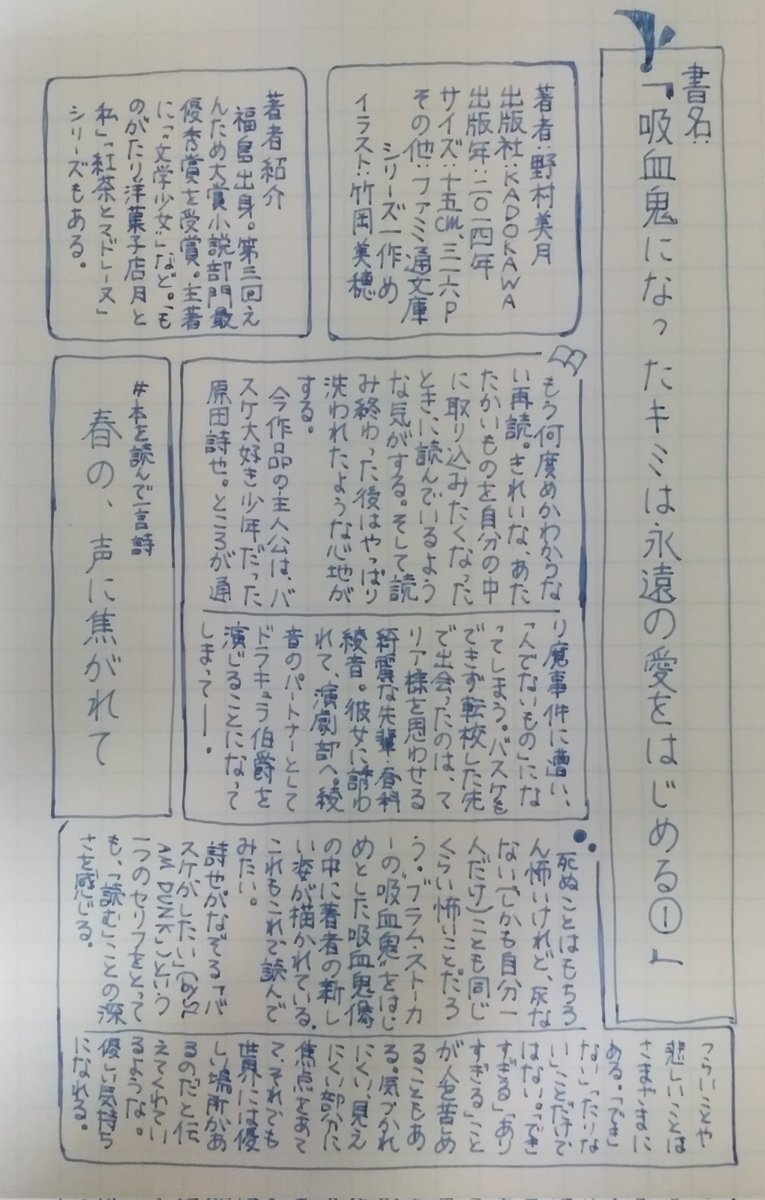 書名:
「吸血鬼になったキミは永遠の愛をはじめる①」
著者:野村美月
出版社:KADOKAWA
出版年:二〇一四年
サイズ:十五cm、三一六P
その他:ファミ通文庫
シリーズ一作め
イラスト:竹岡美穂
著者紹介
福島出身。第三回え
んため大賞小説部門最
優秀賞を受賞。主著
に「"文学少女"」など。「も
のがたり洋菓子店月と
私」「紅茶とマドレーヌ」
シリーズもある。
もう何度めかわからな
い再読。きれいな、あた
たかいものを自分の中
に取り込みたくなった
ときに読んでいるよう
な気がする。そして読
み終わった後はやっぱり
洗われたような心地が
する。
今作品の主人公は、バ
スケ大好き少年だった
原田詩也。ところが通
り魔事件に遭い、
「人でないもの」にな
ってしまう。バスケも
できず転校した先
で出会ったのは、マ
リア様を思わせる
綺麗な先輩・春科
綾音。彼女に誘わ
れて、演劇部へ。綾
音のパートナーとして
ドラキュラ伯爵を
演じることになって
しまって―。
#本を読んで一言詩
春の、声に焦がれて
死ぬことはもちろ
ん怖いけれど、死な
ない(しかも自分一
人だけ)ことも同じ
くらい怖いことだろ
う。ブラム・ストーカ
ーの『吸血鬼』をはじ
めとした吸血鬼像
の中に著者の新し
い姿が描かれている。
これもこれで読んで
みたい。
詩也がなぞる「バ
スケがしたい」
DUNK』という
一つのセリフをとって
も、「読む」ことの深
さを感じる。
つらいことや
悲しいことは
さまざまに
ある。「でき
ない」「たりな
い」ことだけで
はない。「でき
すぎる」「あり
すぎる」こと
が人を苦しめ
ることもあ
る。気づかれ
にくい、見え
にくい部分に
焦点をあて
て、それでも
世界には優
しい場所があ
るのだと伝
えてくれてい
るような。
優しい気持ち
になれる。